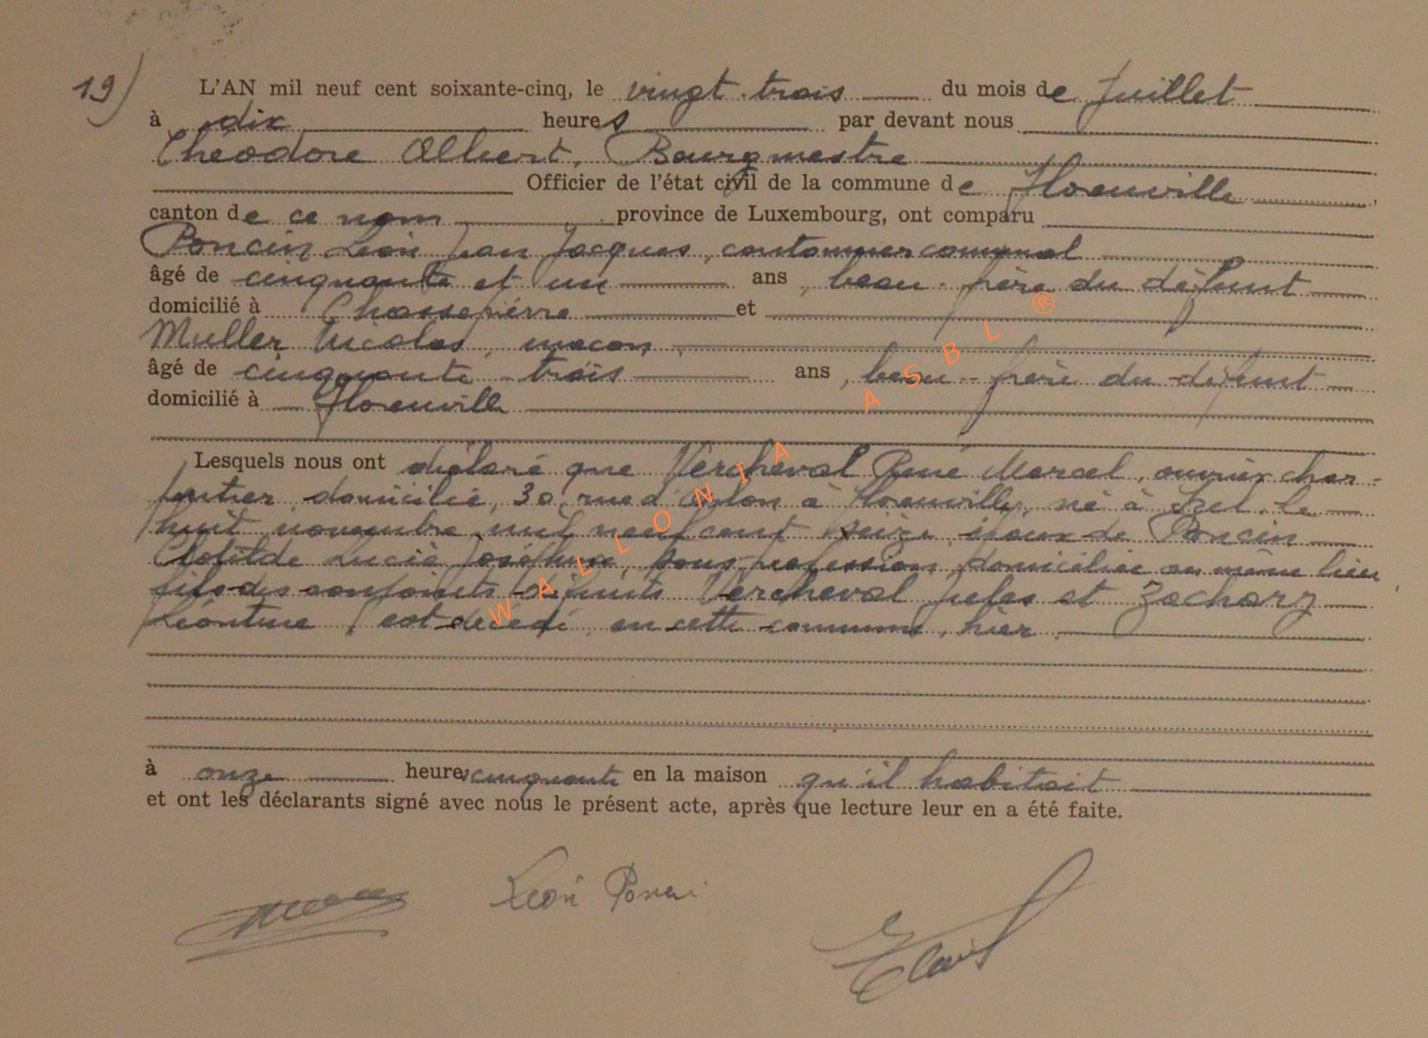 19) L'AN mil neuf cent soixante-cinq, le vingt-trois du mois de Juillet
à dix heures par devant nous
Théodore Albert, Bourgmestre
Officier de l'état civil de la commune de Florenville
canton de ce nom province de Luxembourg, ont comparu
Poncin Léon Jean Jacques, cantonnier communal
âgé de cinquante et un ans, beau-frère du défunt
domicilié à Chassepierre et
Muller Nicolas, maçon,
âgé de cinquante-trois ans, beau-frère du défunt
domicilié à Florenville
Lesquels nous ont déclaré que Vercheval René Marcel, ouvrier char-
pentier, domicilié, 30, rue d'Arlon à Florenville, né à Izel, le
huit novembre mil neuf cent seize, époux de Poncin
Clotilde Lucie Joséphine, sans profession, domiciliée au même lieu,
fils des conjoints défunts Vercheval Jules et Zachary
Léontine, est décédé, en cette commune, hier
à onze heures cinquante en la maison qu'il habitait
et ont les déclarants signé avec nous le présent acte, après que lecture leur en a été faite.
Léon Poncin
WALLONIA ASBL ®